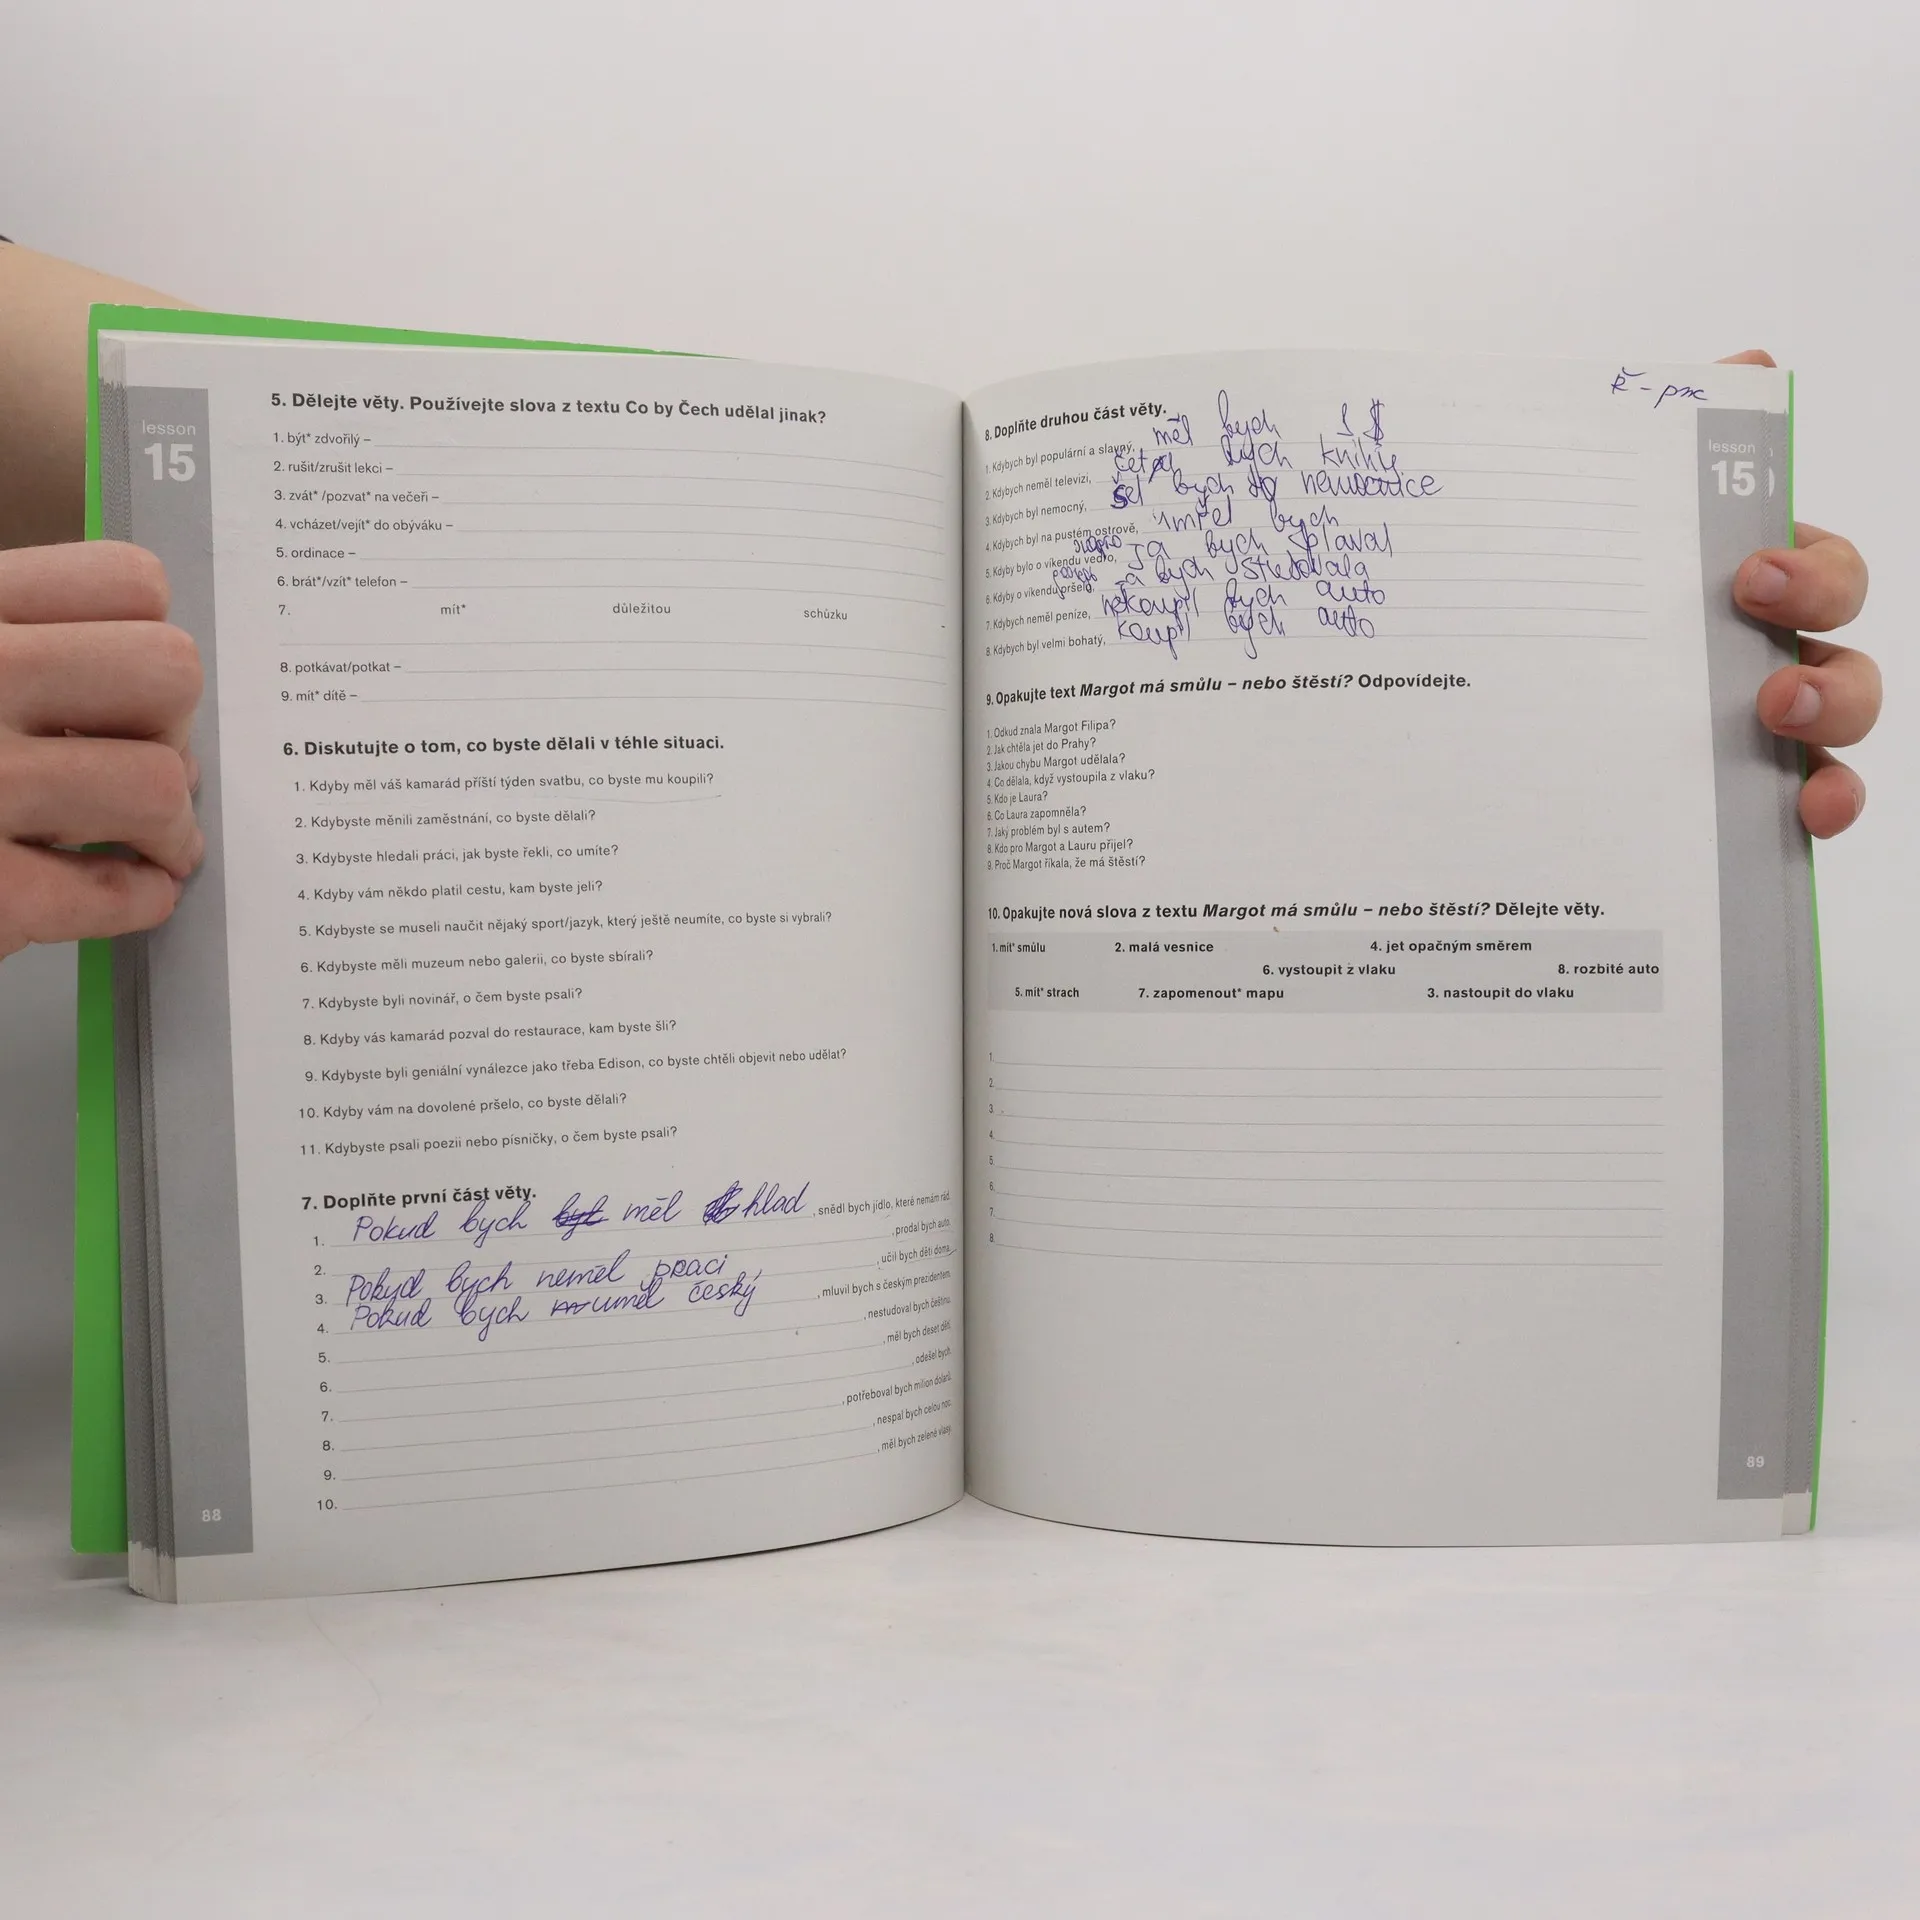 lesson
15
5. Dělejte věty. Používejte slova z textu Co by Čech udělal jinak?
1. být* zdvořilý –
2. rušit/zrušit lekci –
3. zvát* /pozvat* na večeři –
4. vcházet/vejít* do obýváku –
5. ordinace –
6. brát*/vzít* telefon –
7. mít* důležitou schůzku
8. potkávat/potkat –
9. mít* dítě –
6. Diskutujte o tom, co byste dělali v téhle situaci.
1. Kdyby měl váš kamarád příští týden svatbu, co byste mu koupili?
2. Kdybyste měnili zaměstnání, co byste dělali?
3. Kdybyste hledali práci, jak byste řekli, co umíte?
4. Kdyby vám někdo platil cestu, kam byste jeli?
5. Kdybyste se museli naučit nějaký sport/jazyk, který ještě neumíte, co byste si vybrali?
6. Kdybyste měli muzeum nebo galerii, co byste sbírali?
7. Kdybyste byli novinář, o čem byste psali?
8. Kdyby vás kamarád pozval do restaurace, kam byste šli?
9. Kdybyste byli geniální vynálezce jako třeba Edison, co byste chtěli objevit nebo udělat?
10. Kdyby vám na dovolené pršelo, co byste dělali?
11. Kdybyste psali poezii nebo písničky, o čem byste psali?
7. Doplňte první část věty.
1. Pokud bych být měl hlad , snědl bych jídlo, které nemám rád.
2. , prodal bych auto.
3. Pokud bych neměl praci , učil bych děti doma.
4. Pokud bych uměl český , mluvil bych s českým prezidentem.
5. , nestudoval bych češtinu.
6. , měl bych deset dětí.
7. , odešel bych.
8. , potřeboval bych milion dolarů.
9. , nespal bych celou noc.
10. , měl bych zelené vlasy.
88
ř - рж
lesson
15
8. Doplňte druhou část věty.
1. Kdybych byl populární a slavný, měl bych $
2. Kdybych neměl televizi, bych knihy
3. Kdybych byl nemocný, šel bych do nemocnice
4. Kdybych byl na pustém ostrově, bych
5. Kdyby bylo o víkendu vedro, ja bych plaval
6. Kdyby o víkendu pršelo, bych
7. Kdybych neměl peníze, nekoupil bych auto
8. Kdybych byl velmi bohatý, koupil bych auto
9. Opakujte text Margot má smůlu – nebo štěstí? Odpovídejte.
1. Odkud znala Margot Filipa?
2. Jak chtěla jet do Prahy?
3. Jakou chybu Margot udělala?
4. Co dělala, když vystoupila z vlaku?
5. Kdo je Laura?
6. Co Laura zapomněla?
7. Jaký problém byl s autem?
8. Kdo pro Margot a Lauru přijel?
9. Proč Margot říkala, že má štěstí?
10. Opakujte nová slova z textu Margot má smůlu – nebo štěstí? Dělejte věty.
1. mít* smůlu 2. malá vesnice 4. jet opačným směrem
6. vystoupit z vlaku 8. rozbité auto
5. mít* strach 7. zapomenout* mapu 3. nastoupit do vlaku
1.
2.
3.
4.
5.
6.
7.
8.
89